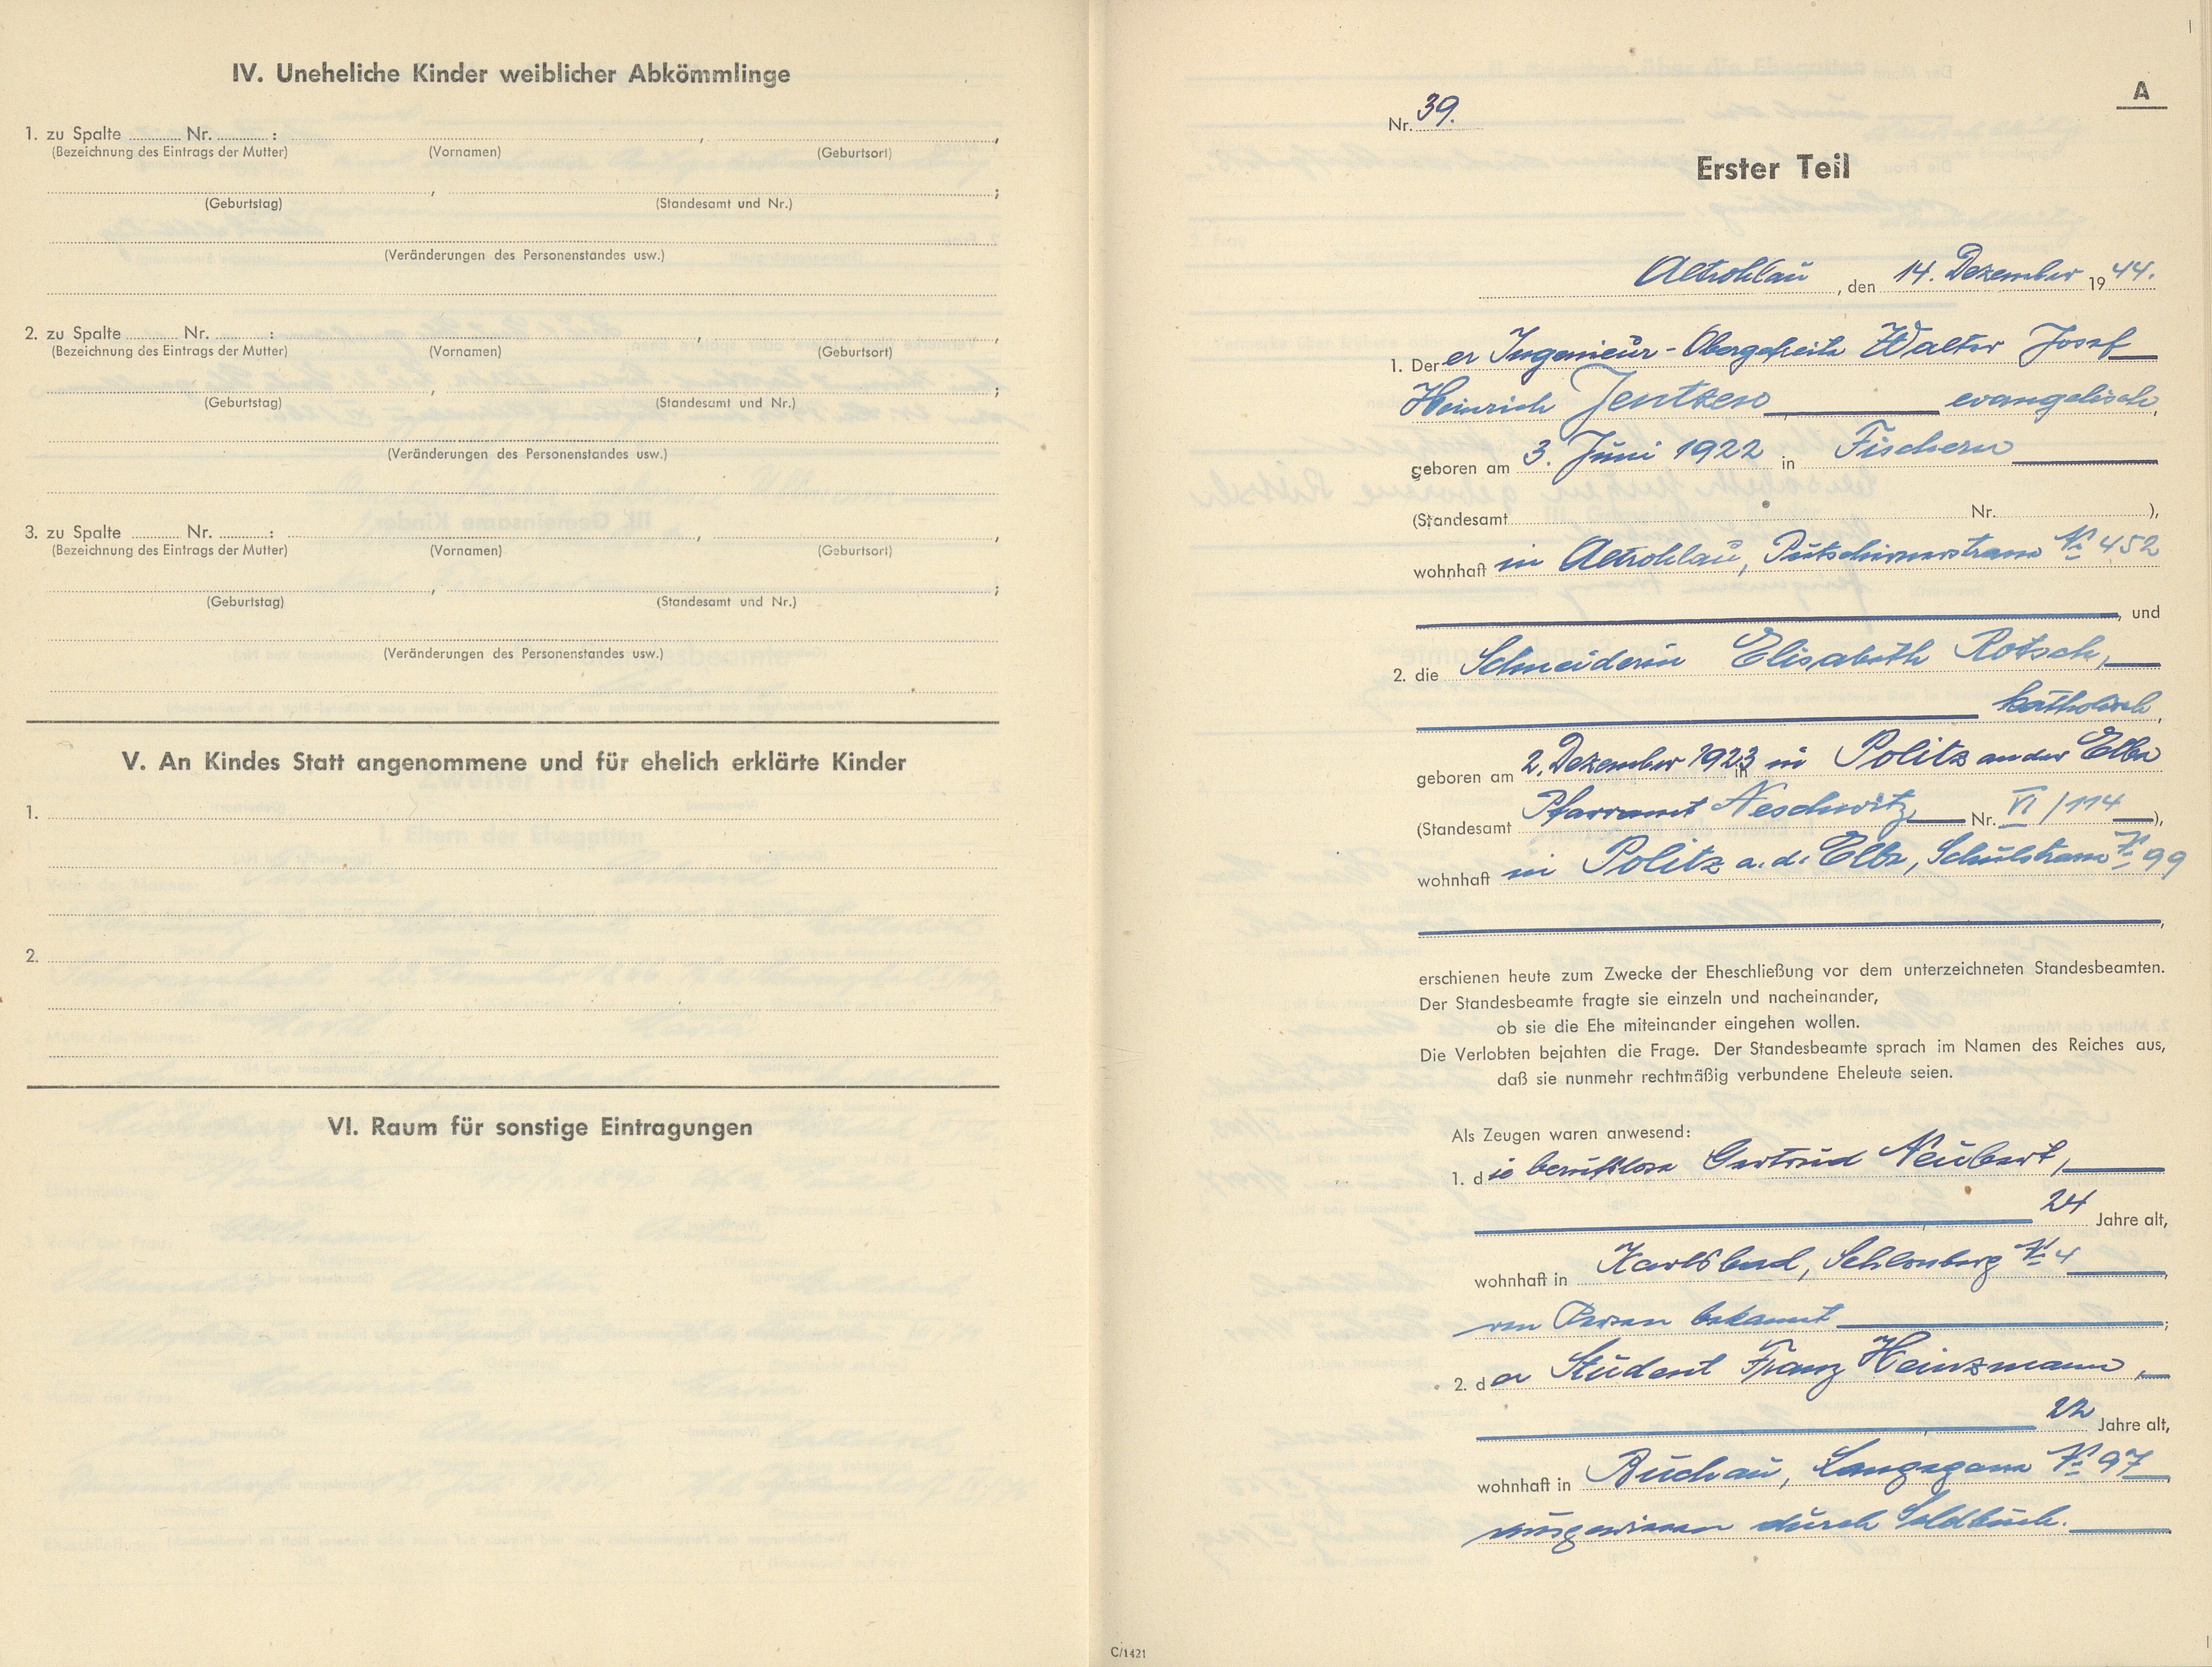 IV. Uneheliche Kinder weiblicher Abkömmlinge
1. zu Spalte ........... Nr. ........... : ,  ,
(Bezeichnung des Eintrags der Mutter) (Vornamen) (Geburtsort)
, ;
(Geburtstag) (Standesamt und Nr.)
(Veränderungen des Personenstandes usw.)
2. zu Spalte ........... Nr. ........... : ,  ,
(Bezeichnung des Eintrags der Mutter) (Vornamen) (Geburtsort)
, ;
(Geburtstag) (Standesamt und Nr.)
(Veränderungen des Personenstandes usw.)
3. zu Spalte ........... Nr. ........... : ,  ,
(Bezeichnung des Eintrags der Mutter) (Vornamen) (Geburtsort)
, ;
(Geburtstag) (Standesamt und Nr.)
(Veränderungen des Personenstandes usw.)
V. An Kindes Statt angenommene und für ehelich erklärte Kinder
1.
2.
VI. Raum für sonstige Eintragungen
A
Nr. 39.
Erster Teil
Altrohlau, den 14. Dezember 1944.
1. Der er Ingenieur-Obergefreite Walter Josef
Heinrich Jentzen evangelisch,
geboren am 3. Juni 1922 in Fischern
(Standesamt Nr. ),
wohnhaft in Altrohlau, Putschirnerstrasse № 452
, und
2. die Schneiderin Elisabeth Rotsch,
katholisch,
geboren am 2. Dezember 1923 in in Politz an der Elbe
(Standesamt Pfarramt Neschwitz Nr. VI/114 ),
wohnhaft in Politz a. d. Elbe, Schulstrasse № 99
,
erschienen heute zum Zwecke der Eheschließung vor dem unterzeichneten Standesbeamten.
Der Standesbeamte fragte sie einzeln und nacheinander,
ob sie die Ehe miteinander eingehen wollen.
Die Verlobten bejahten die Frage. Der Standesbeamte sprach im Namen des Reiches aus,
daß sie nunmehr rechtmäßig verbundene Eheleute seien.
Als Zeugen waren anwesend:
1. die berufslose Gertrud Neubert,
24 Jahre alt,
wohnhaft in Karlsbad, Schlossberg № 4,
von Person bekannt ;
2. der Student Franz Heinzmann,
22 Jahre alt,
wohnhaft in Buchau, Langegasse № 97,
ausgewiesen durch Soldbuch.
C/1421